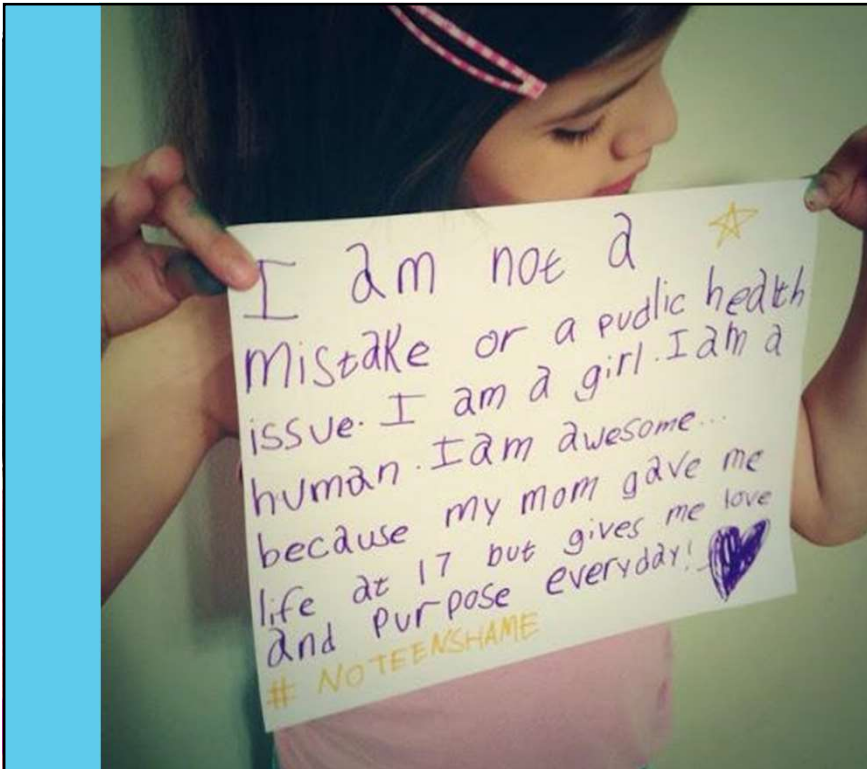 I am not a
mistake or a pudlic health
issue. I am a girl. I am a
human. I am awesome...
because my mom gave me
life at 17 but gives me love
and purpose everyday!
# NOTEENSHAME